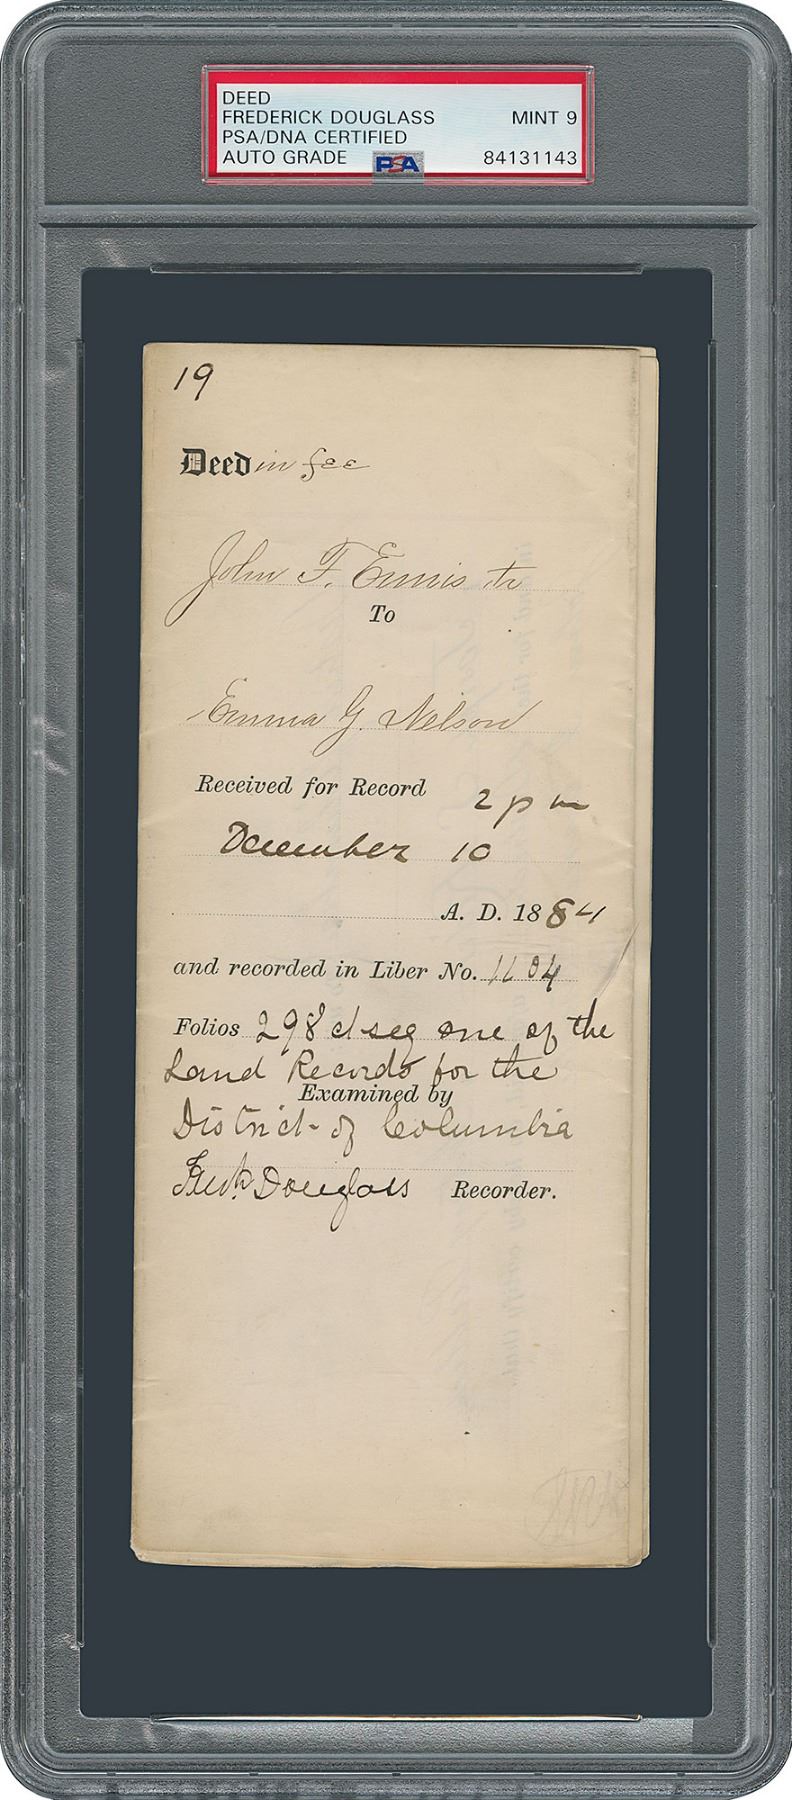 DEED
FREDERICK DOUGLASS MINT 9
PSA/DNA CERTIFIED
AUTO GRADE PSA 84131143
19
Deed in fee
John F. Ennis tr
To
Emma G. Nelson
Received for Record 2 pm
December 10
A. D. 1884
and recorded in Liber No. 1104
Folios 298 et seq one of the
Land Records for the
Examined by
District of Columbia
Fredk Douglass Recorder.